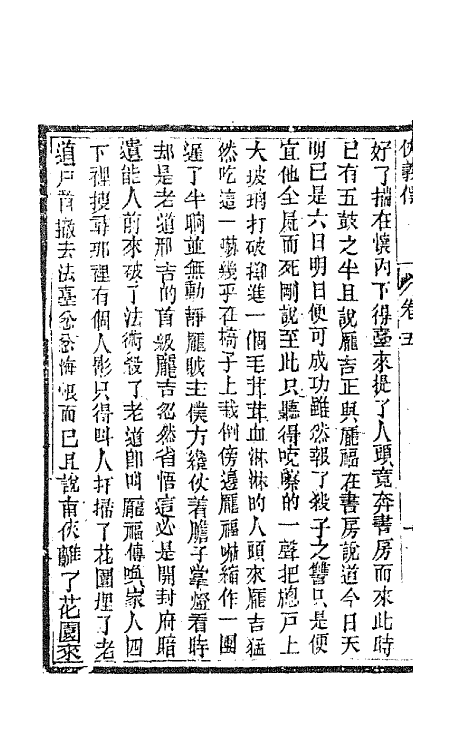 俠義傳
卷五
好了揣在懷內下得臺來提了人頭竟奔書房而來此時
已有五鼓之半且說龐吉正與龐福在書房說道今日天
明已是六日明日便可成功雖然報了殺子之讐只是便
宜他全屍而死剛說至此只聽得咬嚓的一聲把窻戶上
大玻璃打破擲進一個毛茸茸血淋淋的人頭來龐吉猛
然吃這一嚇幾乎在椅子上栽倒傍邊龐福嚇縮作一團
遲了半晌並無動靜龐賊主僕方纔仗着膽子掌燈看時
却是老道邢吉的首級龐吉忽然省悟這必是開封府暗
遣能人前來破了法術殺了老道卽叫龐福傳喚家人四
下裡搜尋那裡有個人影只得叫人打掃了花園埋了老
道尸首撤去法臺忿忿悔恨而已且說南俠離了花園來